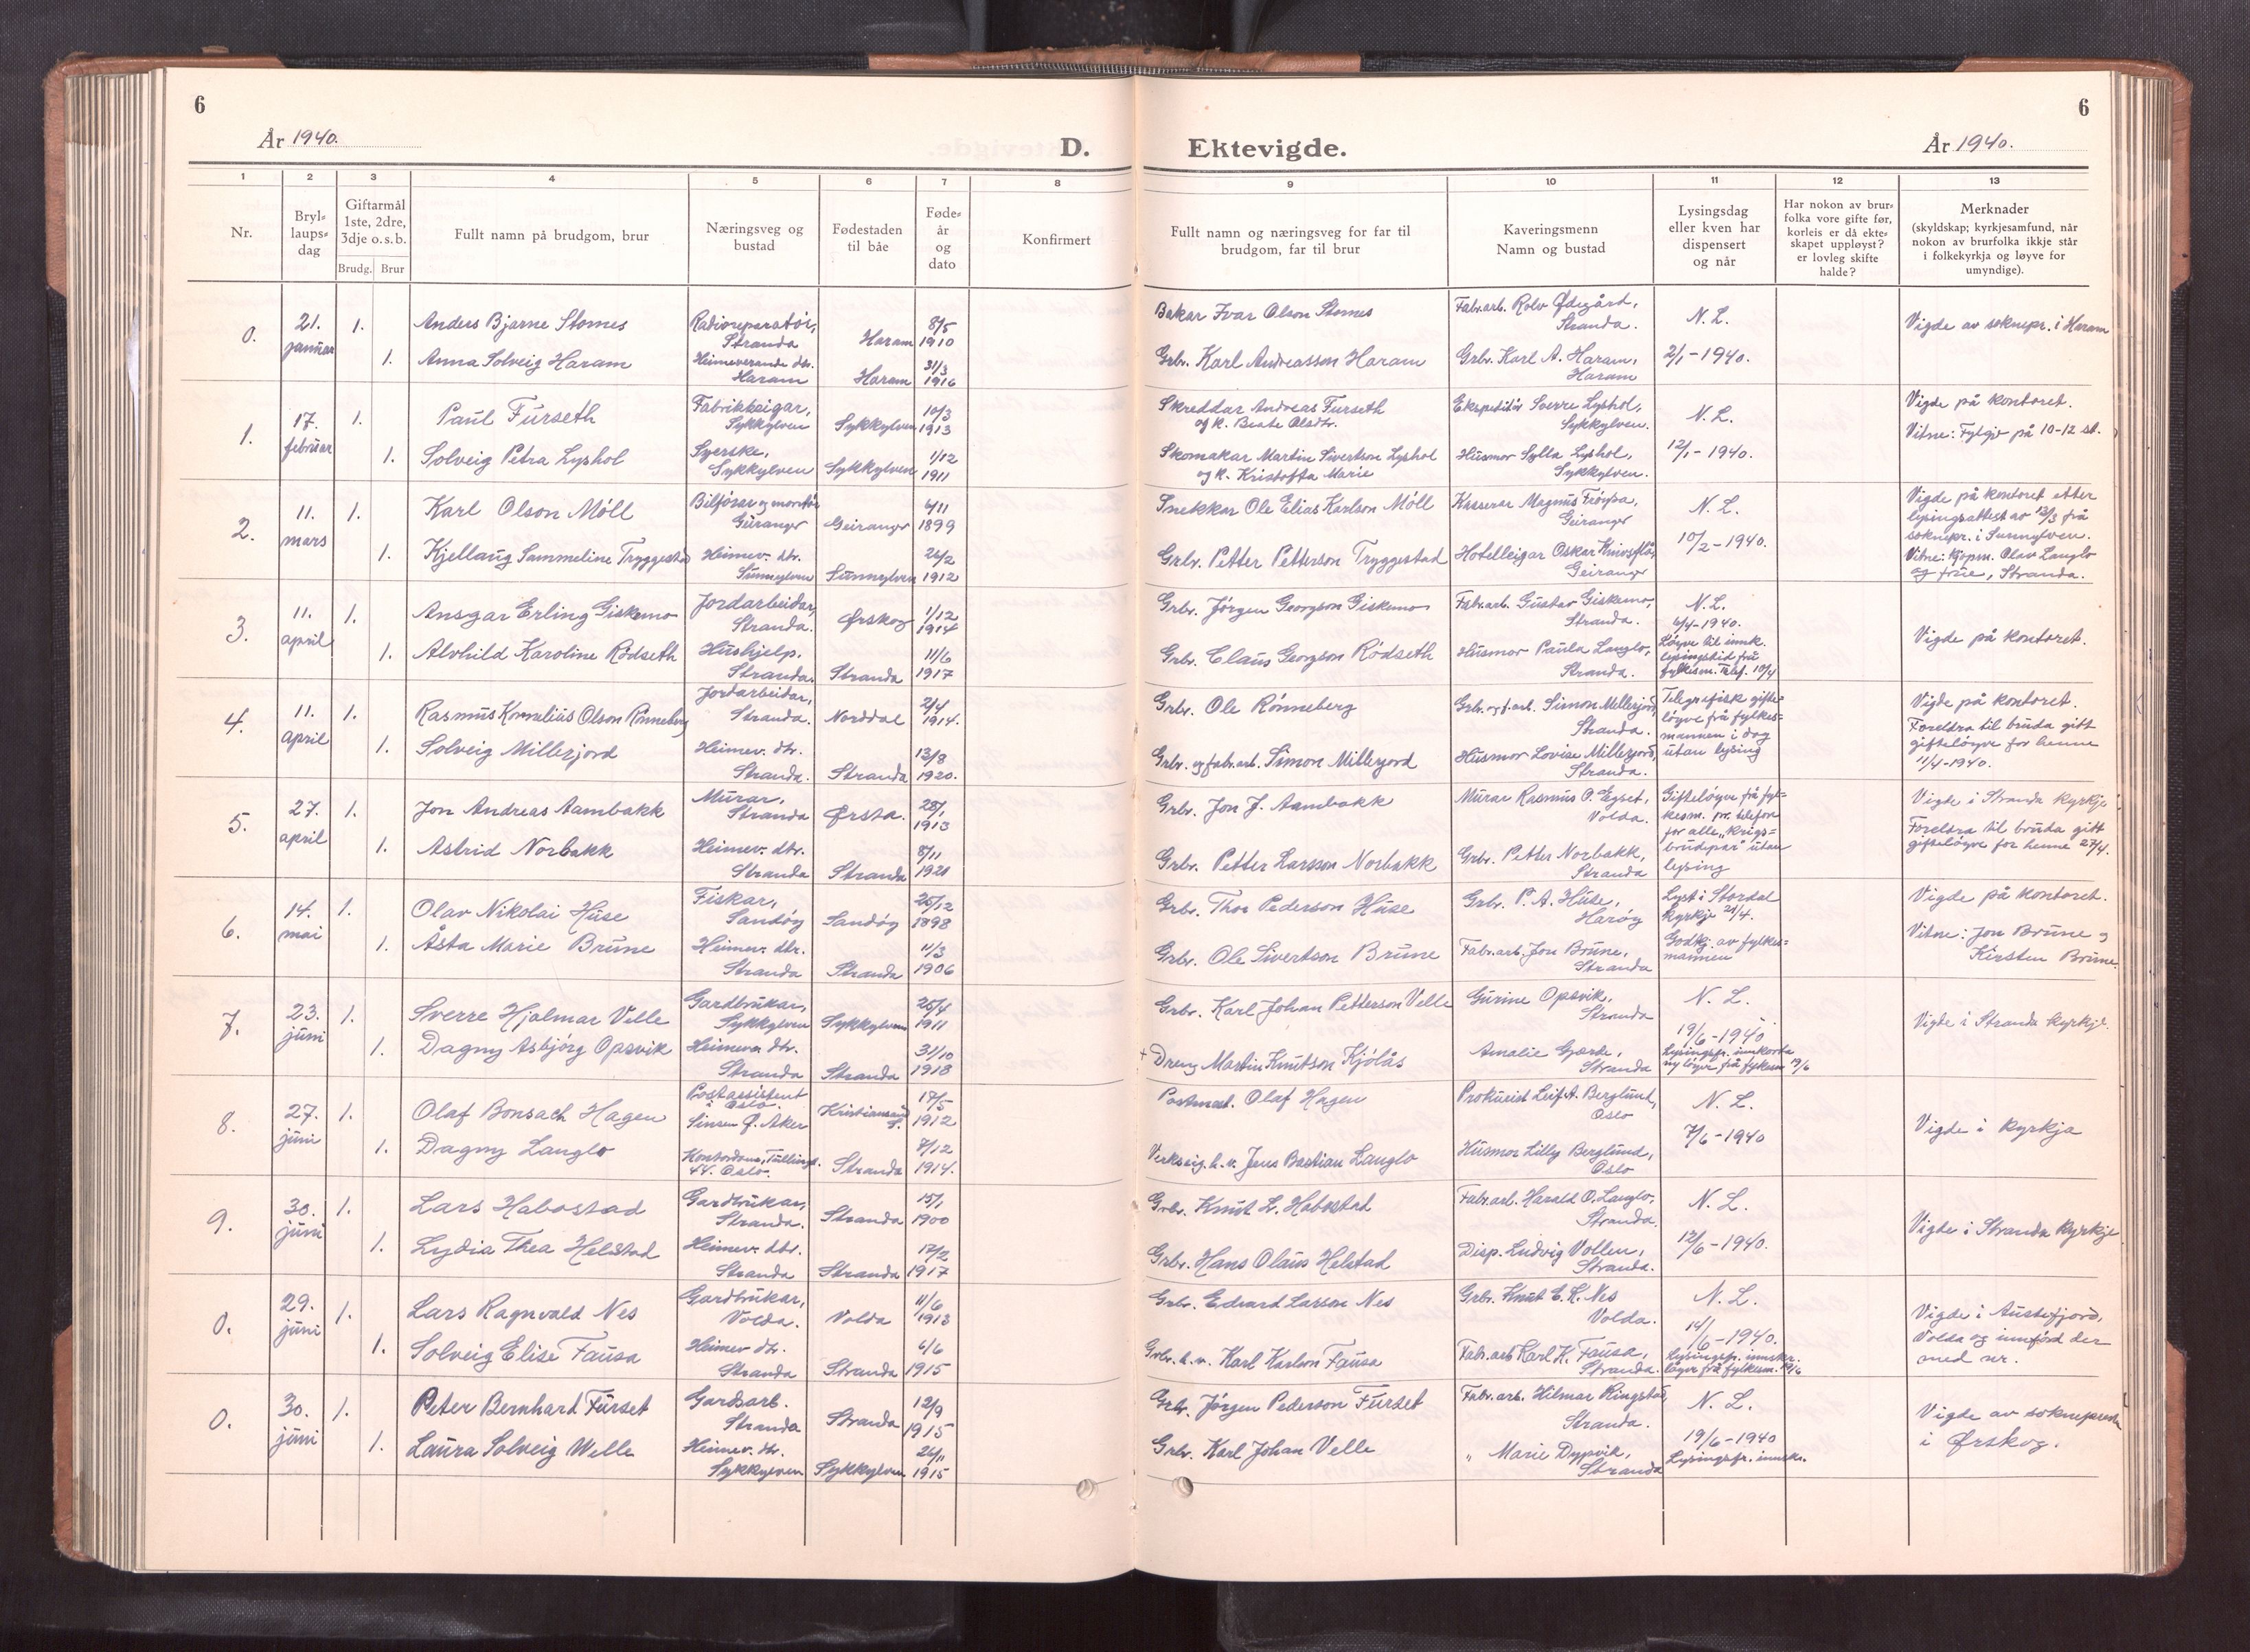 6
År 1940.
D.
Ektevigde.
År 1940.
6
1 2 3 4 5 6 7 8 9 10 11 12 13
Nr.
Bryl-
laups-
dag
Giftarmål
1ste, 2dre,
3dje o.s.b.
Brudg. Brur
Fullt namn på brudgom, brur
Næringsveg og
bustad
Fødestaden
til båe
Føde-
år
og
dato
Konfirmert
Fullt namn og næringsveg for far til
brudgom, far til brur
Kaveringsmenn
Namn og bustad
Lysingsdag
eller kven har
dispensert
og når
Har nokon av brur-
folka vore gifte før,
korleis er då ekte-
skapet uppløyst?
er lovleg skifte
halde?
Merknader
(skyldskap; kyrkjesamfund, når
nokon av brurfolka ikkje står
i folkekyrkja og løyve for
umyndige).
0.
21.
januar
1.
Anders Bjarne Stomes
Radioreparatör,
Stranda
Haram
8/5
1910
Bakar Ivar Olson Stomes
Fabr.arb. Rolv Ødegård,
Stranda.
N. L.
Vigde av soknepr. i Haram
1.
Anna Solveig Haram
Heimeverande dtr.
Haram
Haram
31/3
1916
Grbr. Karl Andreasson Haram
Grbr. Karl A. Haram,
Haram
2/1-1940.
1.
17.
februar
1.
Paul Furseth
Fabrikkeigar,
Sykkylven
Sykkylven
10/3
1913
Skreddar Andreas Furseth
og k. Beate Olsdtr.
Ekspeditör Sverre Lyshol,
Sykkylven.
N. L.
Vigde på kontoret.
Vitne: Fylgje på 10-12 st.
1.
Solveig Petra Lyshol
Syerske,
Sykkylven
Sykkylven
1/12
1911
Skomakar Martin Sivertson Lyshol
og k. Kristofta Marie
Husmor Sylla Lyshol,
Sykkylven.
12/1-1940.
2.
11.
mars
1.
Karl Olson Möll
Bilförar og montör
Geiranger
Geiranger
6/11
1899
Snekkar Ole Elias Karlson Möll
Kasserar Magnus Fröysa,
Geiranger
N. L.
Vigde på kontoret etter
lysingsattest av 12/3 frå
soknepr. i Sunnylven.
Vitne: Kjøpm. Olav Langlo
og frue, Stranda.
1.
Kjellaug Sammeline Tryggestad
Heimev. dtr.
Sunnylven
Sunnylven
26/2
1912
Grbr. Petter Petterson Tryggestad
Hotelleigar Oskar Knivsflå,
Geiranger
10/2-1940.
3.
11.
april
1.
Ansgar Erling Giskemo
Jordarbeidar,
Stranda.
Ørskog
1/12
1914
Grbr. Jörgen Georgson Giskemo
Fabr.arb. Gustav Giskemo,
Stranda.
N. L.
6/4-1940.
Löyve til innk.
lysingstid frå
fylkesm. Telef. 10/4
Vigde på kontoret.
1.
Alvhild Karoline Rödseth
Hushjelp.
Stranda
Stranda
11/6
1917
Grbr. Claus Georgson Rödseth
Husmor Paula Langlo,
Stranda.
4.
11.
april
1.
Rasmus Kornelius Olson Rönneberg
Jordarbeidar,
Stranda.
Norddal
2/4
1914.
Grbr. Ole Rönneberg
Grbr. og f.arb. Simon Millerjord,
Stranda.
Telegrafisk gifte-
löyve frå fylkes-
mannen i dag
utan lysing
Vigde på kontoret.
Foreldra til bruda gitt
giftelöyve for henne
11/4-1940.
1.
Solveig Millerjord
Heimev. dtr.
Stranda.
Stranda
13/8
1920.
Grbr. og fabr.arb. Simon Millerjord
Husmor Lovise Millerjord,
Stranda.
5.
27.
april
1.
Jon Andreas Aambakk
Murar,
Stranda
Ørsta.
28/1
1913
Grbr. Jon J. Aambakk
Murar Rasmus O. Egset,
Volda.
Giftelöyve frå fyl-
kesm. pr. telefon
for alle "krigs-
brudepar" utan
lysing
Vigde i Stranda kyrkje
Foreldra til bruda gitt
giftelöyve for henne 27/4.
1.
Astrid Norbakk
Heimev. dtr.
Stranda
Stranda
8/11
1921
Grbr. Petter Larsson Norbakk
Grbr. Petter Norbakk,
Stranda
6.
14.
mai
1.
Olav Nikolai Huse
Fiskar,
Sandöy
Sandöy
25/12
1898
Grbr. Thor Pederson Huse
Grbr. P. A. Huse,
Haröy
Lyst i Stordal
kyrkje 21/4.
Godkj. av fylkes-
mannen
Vigde på kontoret.
Vitne: Jon Brune og
Kirsten Brune.
1.
Åsta Marie Brune
Heimev. dtr.
Stranda
Stranda
11/3
1906
Grbr. Ole Sivertson Brune
Fabr.arb. Jon Brune,
Stranda
7.
23.
juni
1.
Sverre Hjalmar Velle
Gardbrukar,
Sykkylven
Sykkylven
25/4
1911
Grbr. Karl Johan Petterson Velle
Gurine Opsvik,
Stranda
N. L.
19/6-1940
Lysingsfr. innkorta
ny löyve frå fylkesm 19/6
Vigde i Stranda kyrkje.
1.
Dagny Asbjörg Opsvik
Heimev. dtr.
Stranda
Stranda
31/10
1918
+ Dreng Martin Knutson Kjölås
Amalie Gjærde,
Stranda
8.
27.
juni
1.
Olaf Bonsach Hagen
Postassistent
i Oslo.
Sinsen Ø. Aker
Kristiansund
17/5
1912
Postmest. Olaf Hagen
Prokurist Leif A. Berglund,
Oslo
N. L.
7/6-1940
Vigde i kyrkja
1.
Dagny Langlo
Kontordame, Tullinsg.
44. Oslo.
Stranda
7/12
1914.
Verkseig. h.v. Jens Bastian Langlo
Husmor Lilly Berglund,
Oslo
9.
30.
juni
1.
Lars Habostad
Gardbrukar,
Stranda.
Stranda
15/1
1900
Grbr. Knut L. Habostad
Fabr.arb. Harald O. Langlo,
Stranda.
N. L.
12/6-1940.
Vigde i Stranda kyrkje
1.
Lydia Thea Helstad
Heimev. dtr.
Stranda
Stranda
17/2
1917
Grbr. Hans Olaus Helstad
Disp. Ludvig Vollen,
Stranda.
0.
29.
juni
1.
Lars Ragnvald Nes
Gardbrukar,
Volda.
Volda
11/6
1913
Grbr. Edvard Larsson Nes
Grbr. Knut E. K. Nes
Volda.
N. L.
14/6-1940.
Lysingsfr. innskr.
löyve frå fylkesm. 19/6
Vigde i Austefjord,
Volda og innförd der
med nr.
1.
Solveig Elise Fausa
Heimev dtr.
Stranda
Stranda
6/6
1915
Grbr. h.v. Karl Karlson Fausa
Fabr.arb Karl K. Fausa,
Stranda.
0.
30.
juni
1.
Peter Bernhard Furset
Gardsarb.
Stranda
Stranda
12/9
1915
Grbr. Jörgen Pederson Furset
Fabr.arb. Hilmar Ringstad,
Stranda.
N. L.
19/6-1940
Lysingsfr. innskr.
Vigde av sokneprest
i Ørskog.
1.
Laura Solveig Welle
Heimev. dtr.
Sykkylven
Sykkylven
26/11
1915
Grbr. Karl Johan Velle
" Marie Dypvik,
Stranda